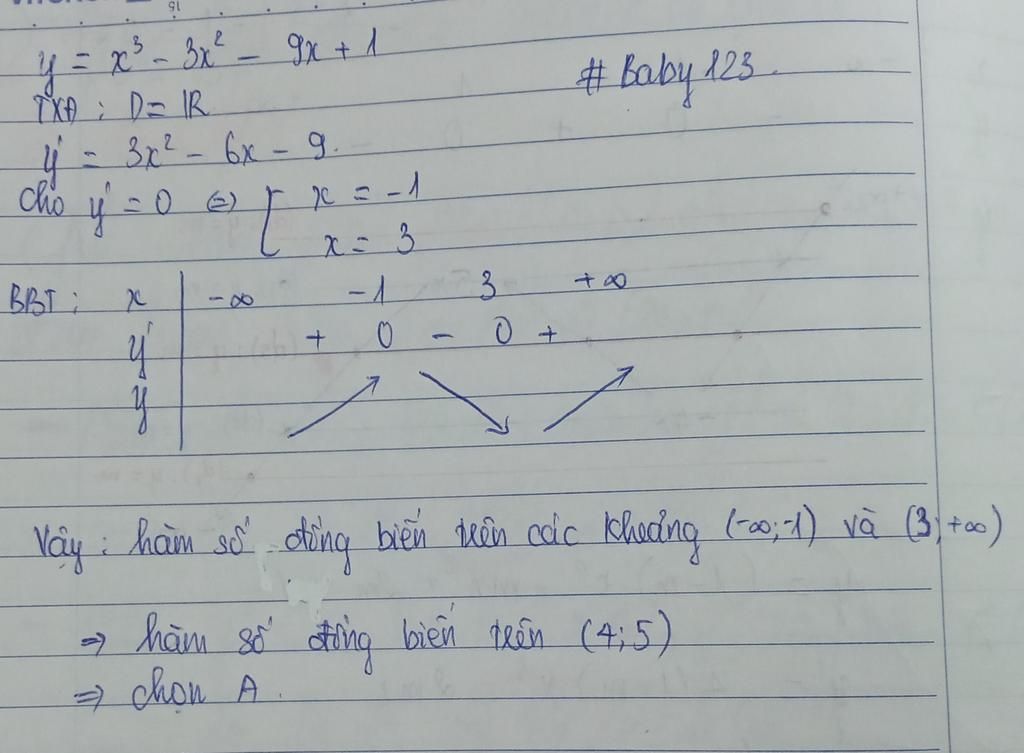 y = x³ - 3x² - 9x + 1
# Baby 123.
TXĐ : D = ℝ
y' = 3x² - 6x - 9.
Cho y' = 0 ⇔ [ x = -1
x = 3
BBT : x | -∞ -1 3 +∞
y' | + 0 - 0 +
y | ↗ ↘ ↗
Vậy : hàm số đồng biến trên các khoảng (-∞;-1) và (3;+∞)
⇒ hàm số đồng biến trên (4;5)
⇒ chọn A.